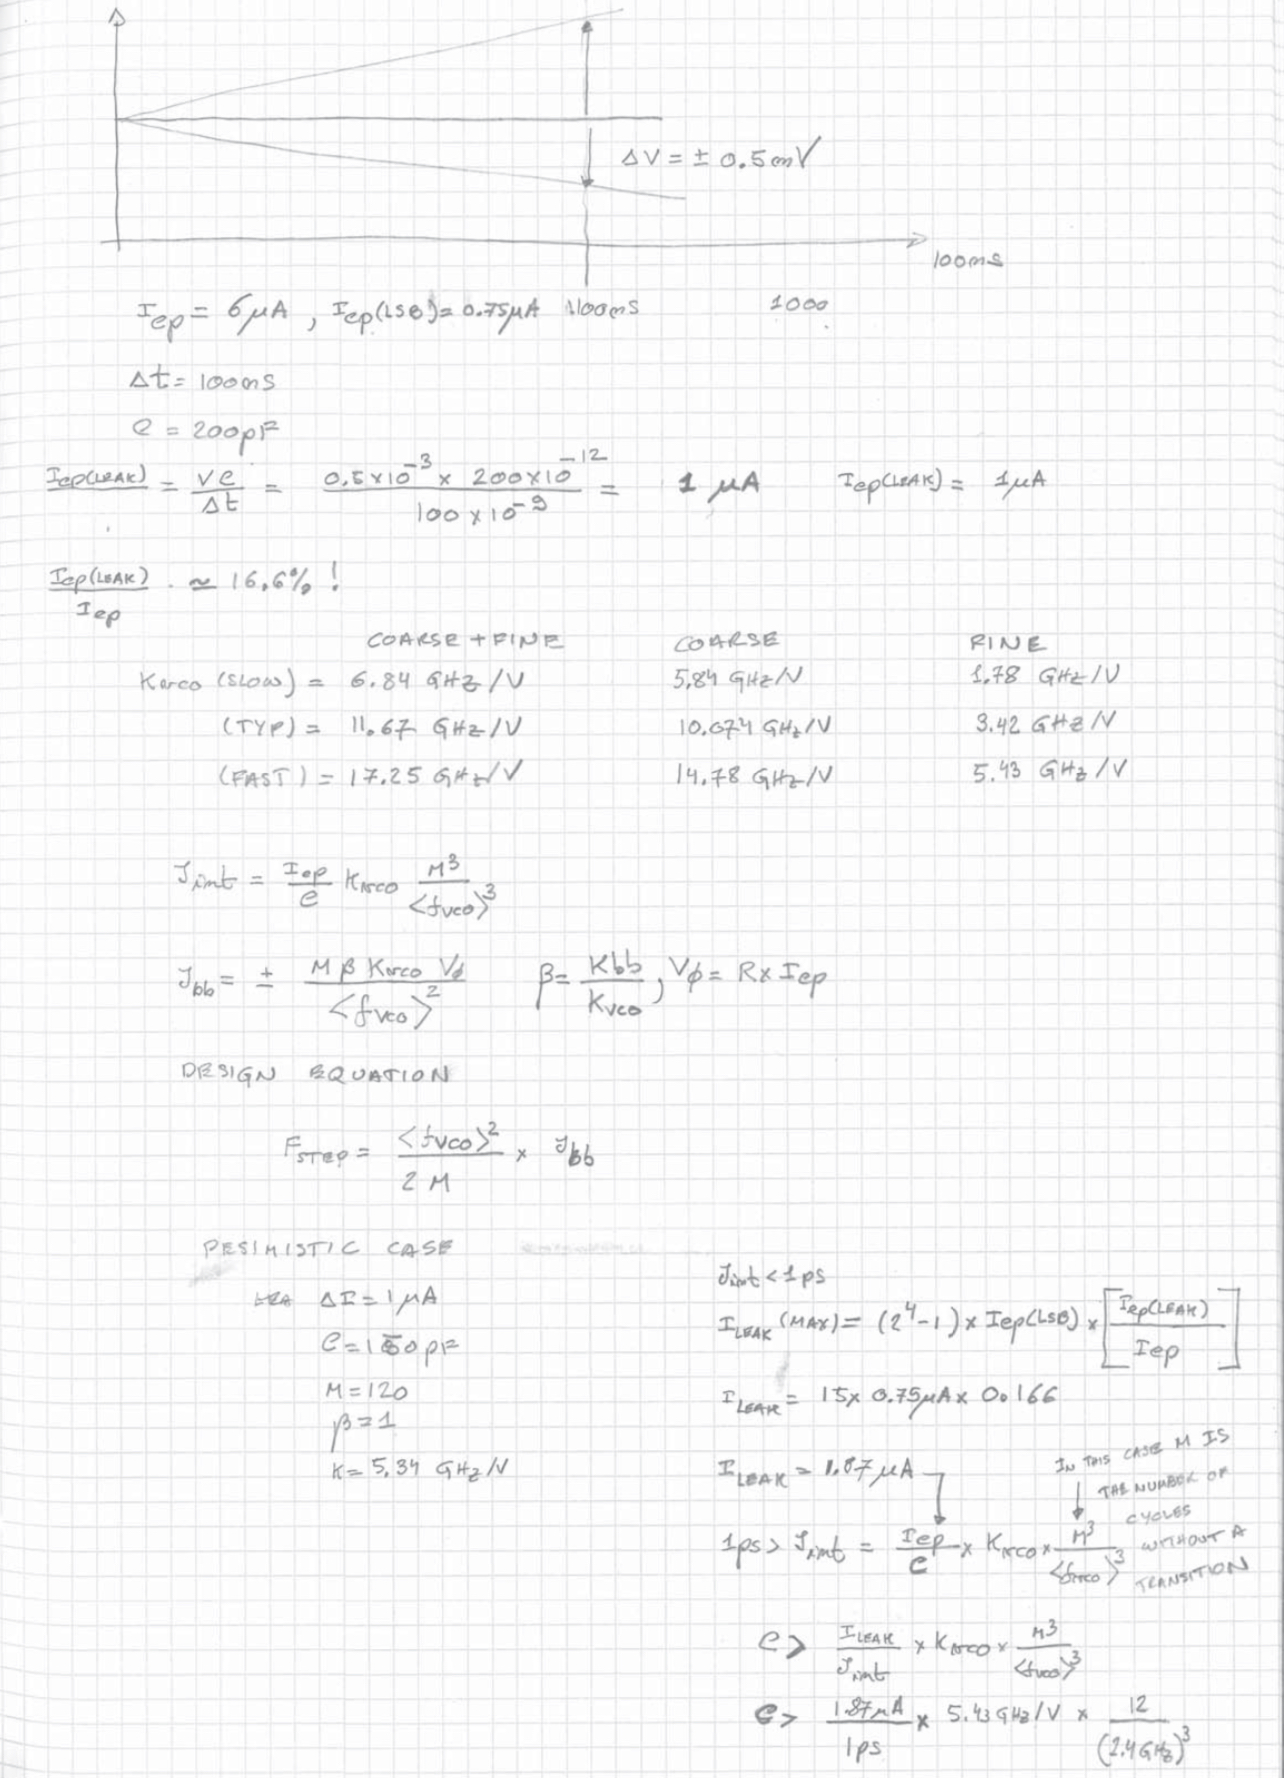 ΔV = ± 0.5mV
100ns
Icp = 6μA , Icp(LSB) = 0.75μA 100ns 1000
Δt = 100ns
C = 200pF
Icp(LEAK) = VC/Δt = 0.5×10^-3 × 200×10^-12 / 100×10^-9 = 1 μA Icp(LEAK) = 1μA
Icp(LEAK)/Icp ≃ 16.6% !
COARSE + FINE COARSE FINE
Kvco (SLOW) = 6.84 GHz/V 5.84 GHz/V 1.78 GHz/V
(TYP) = 11.67 GHz/V 10.074 GHz/V 3.42 GHz/V
(FAST) = 17.25 GHz/V 14.78 GHz/V 5.43 GHz/V
Jint = Icp/C Kvco M^3/<fvco>^3
Jbb = ± M β Kvco Vφ / <fvco>^2 β = Kbb/Kvco ; Vφ = R x Icp
DESIGN EQUATION
FSTEP = <fvco>^2 / 2M × Jbb
PESIMISTIC CASE
ΔI = 1μA
C = 150pF
M = 120
β = 1
K = 5.34 GHz/V
Jint < 1ps
ILEAK (MAX) = (2^4-1) × Icp(LSB) × [Icp(LEAK)/Icp]
ILEAK = 15x 0.75μA x 0.166
ILEAK = 1.87μA
IN THIS CASE M IS
THE NUMBER OF
CYCLES
WITHOUT A
TRANSITION
1ps > Jint = Icp/C × Kvco × M^3/<fvco>^3
C > ILEAK/Jint × Kvco × M^3/<fvco>^3
C > 1.87μA/1ps × 5.43GHz/V × 12/(2.4GHz)^3